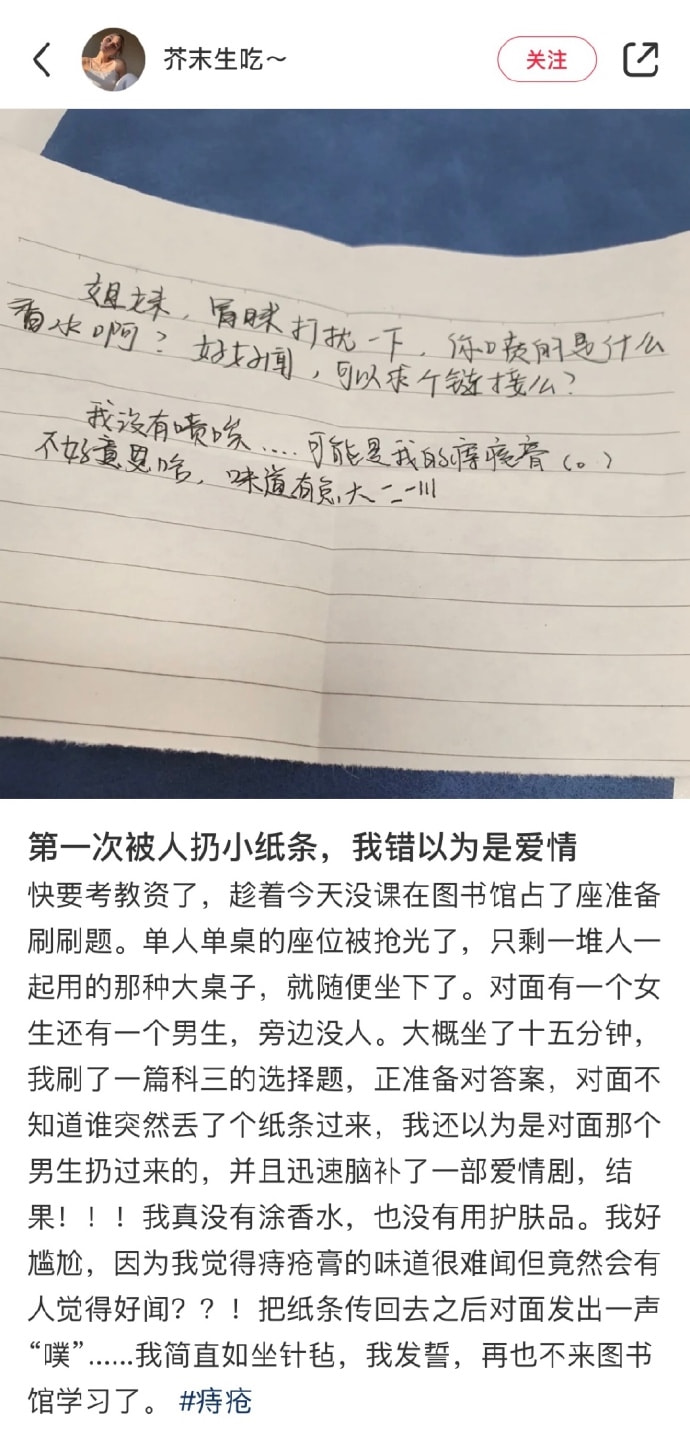 芥末生吃~
关注
姐妹，冒昧打扰一下，你喷的是什么
香水啊？好好闻，可以求个链接么？
我没有喷唉....可能是我的痔疮膏（。）
不好意思哈，味道有点大二二川
第一次被人扔小纸条，我错以为是爱情
快要考教资了，趁着今天没课在图书馆占了座准备
刷刷题。单人单桌的座位被抢光了，只剩一堆人一
起用的那种大桌子，就随便坐下了。对面有一个女
生还有一个男生，旁边没人。大概坐了十五分钟，
我刷了一篇科三的选择题，正准备对答案，对面不
知道谁突然丢了个纸条过来，我还以为是对面那个
男生扔过来的，并且迅速脑补了一部爱情剧，结
果！！！我真没有涂香水，也没有用护肤品。我好
尴尬，因为我觉得痔疮膏的味道很难闻但竟然会有
人觉得好闻？？！把纸条传回去之后对面发出一声
“噗”......我简直如坐针毡，我发誓，再也不来图书
馆学习了。 #痔疮